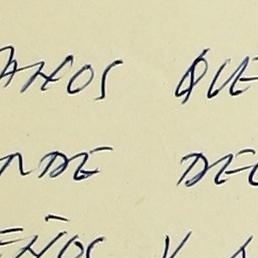 AÑOS QUE
NDE DE
EÑOS Y A